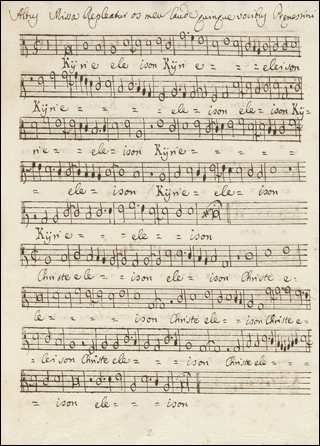 Altus Missa Repleatur os meu laude quinque vocibus Prenestini
Kyrie eleison Kyrie = = = eleison
Kyrie = = = = = eleison eleison Ky=
rie = = eleison Kyrie = = = = =
= eleison Kyrie ele = =
Kyrie = = = eleison
Christe ele = = ison eleison Christe e=
le = = = = ison Christe eleison Christe e=
leison Christe ele = = = ison Christe ele = =
ison ele = = ison
2